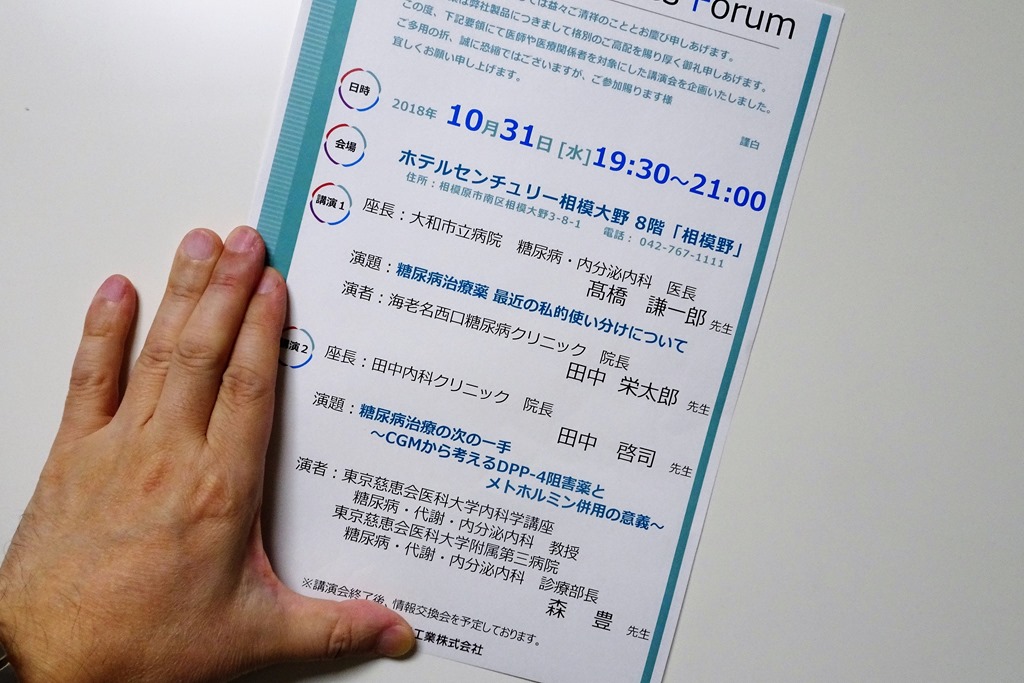 Forum
は益々ご清祥のこととお慶び申しあげます。
は弊社製品につきまして格別のご高配を賜り厚く御礼申しあげます。
この度、下記要領にて医師や医療関係者を対象にした講演会を企画いたしました。
ご多用の折、誠に恐縮ではございますが、ご参加賜ります様
宜しくお願い申し上げます。
謹白
日時
2018年 10月31日 [水]19:30～21:00
会場
ホテルセンチュリー相模大野 8階「相模野」
住所：相模原市南区相模大野3-8-1 電話： 042-767-1111
講演1
座長：大和市立病院 糖尿病・内分泌内科 医長
髙橋 謙一郎 先生
演題：糖尿病治療薬 最近の私的使い分けについて
演者：海老名西口糖尿病クリニック 院長
田中 栄太郎 先生
演2
座長：田中内科クリニック 院長
田中 啓司 先生
演題：糖尿病治療の次の一手
～CGMから考えるDPP-4阻害薬と
メトホルミン併用の意義～
演者：東京慈恵会医科大学内科学講座
糖尿病・代謝・内分泌内科 教授
東京慈恵会医科大学附属第三病院
糖尿病・代謝・内分泌内科 診療部長
森 豊 先生
※講演会終了後、情報交換会を予定しております。
工業株式会社